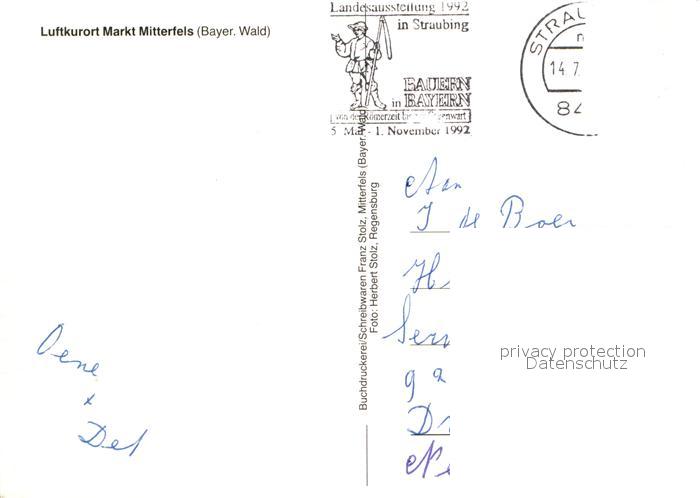 Luftkurort Markt Mitterfels (Bayer. Wald)
Landesausstellung 1992
in Straubing
BAUERN
in BAYERN
von der Römerzeit bis zur Gegenwart
5 Mai - 1. November 1992
STRAU
14.7.
84
Buchdruckerei/Schreibwaren Franz Stolz, Mitterfels (Bayer. Wald)
Foto: Herbert Stolz, Regensburg
Aan
J de Boer
H
Serv
9 a
D
privacy protection
Datenschutz
Oene
x
Del